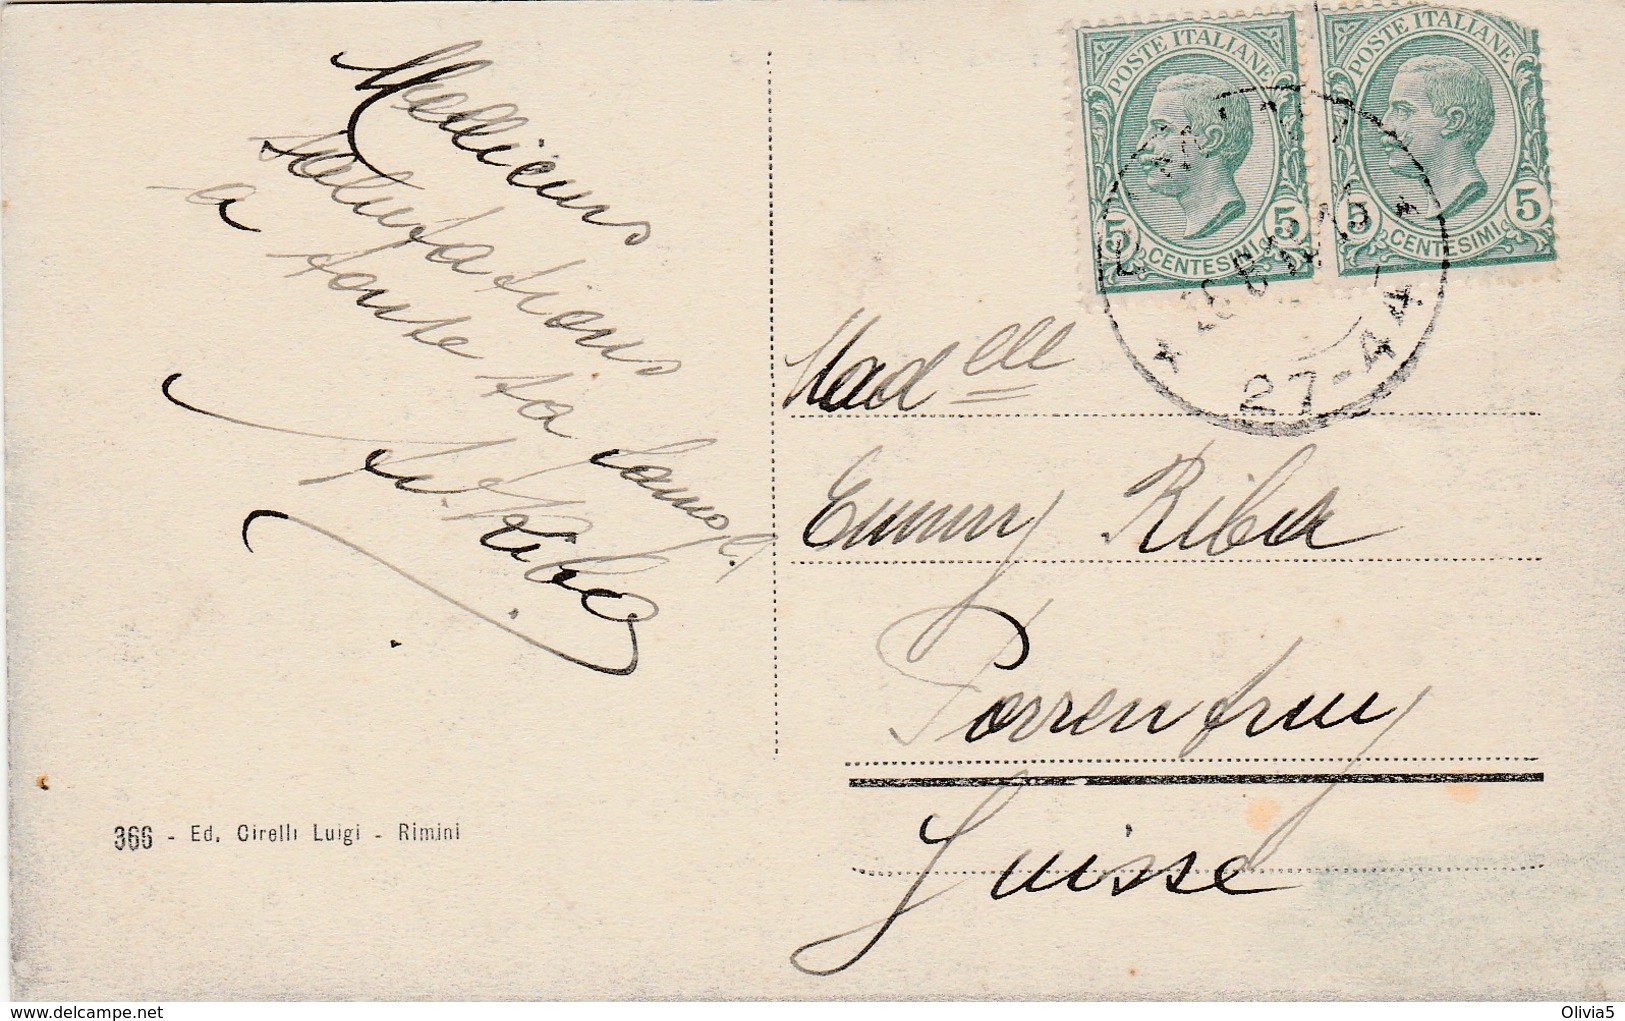 Mellieurs
salutations
a toute ta famille
A. Riba
366 - Ed. Cirelli Luigi - Rimini
POSTE ITALIANE
5 5
CENTESIMI
POSTE ITALIANE
5 5
CENTESIMI
27-
Mad elle
Emmy Riba
Porrentruy
Suisse
www.delcampe.net
Olivia5